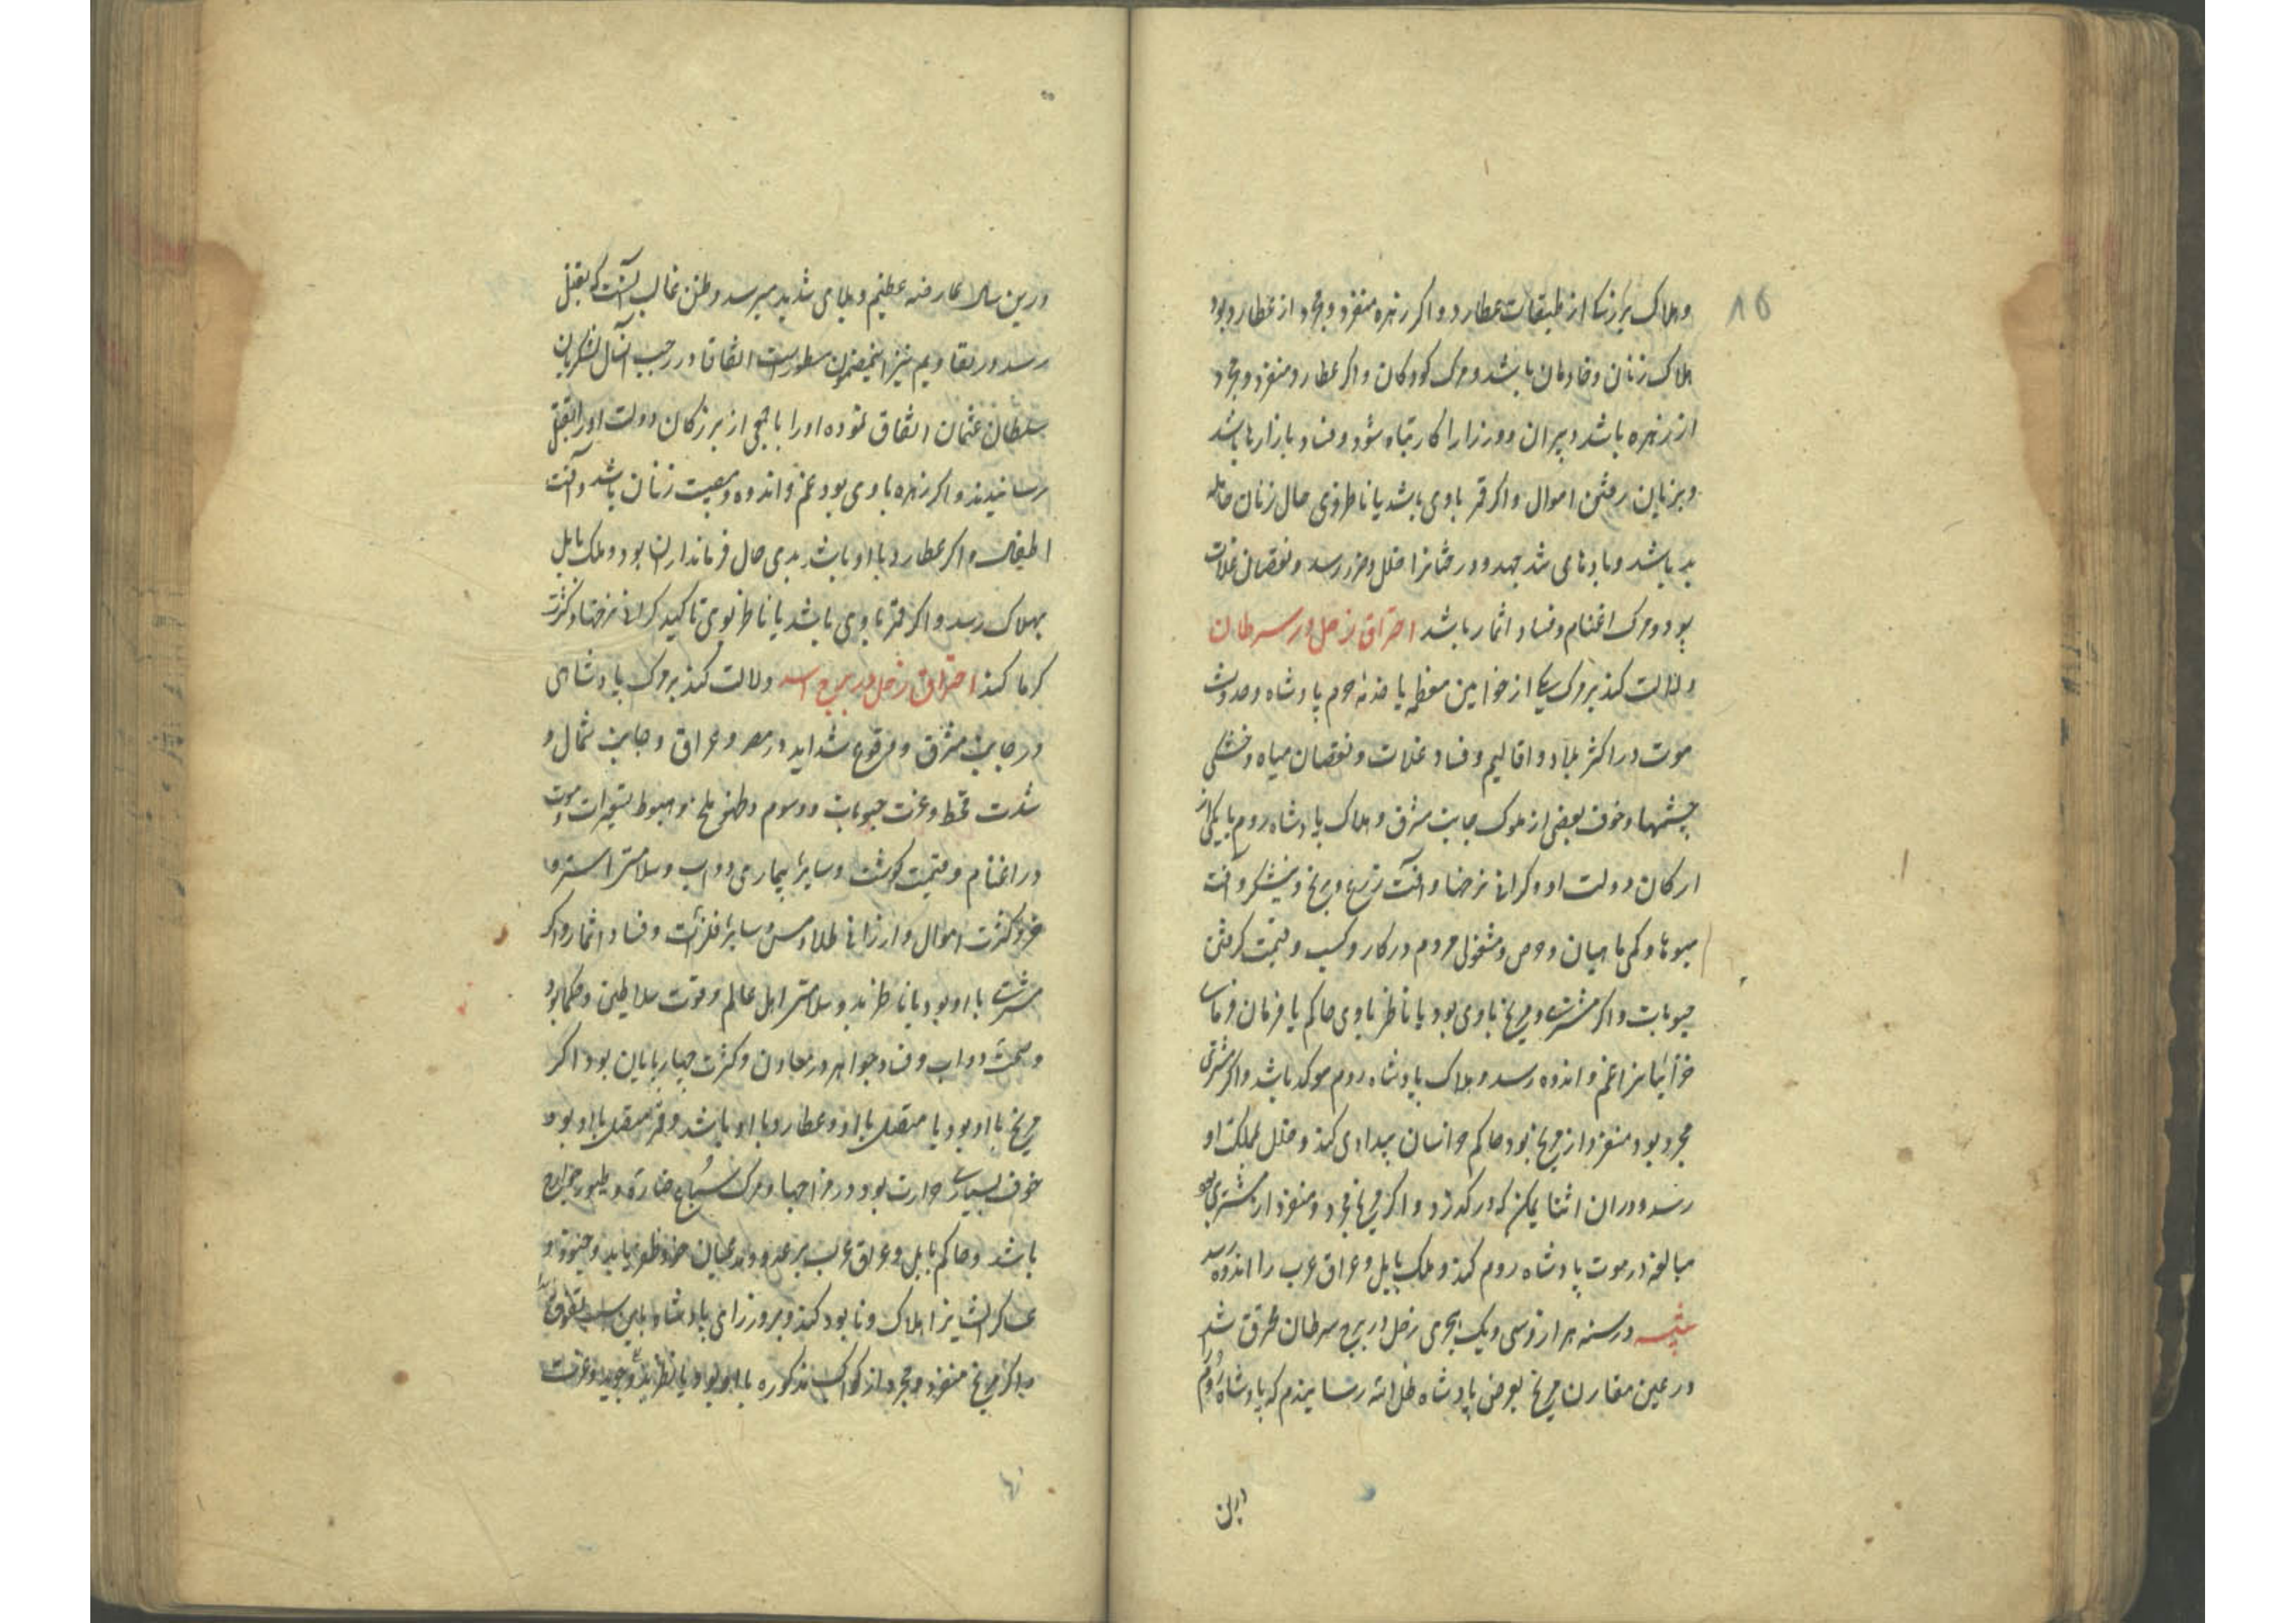 ۸۵
و هلاک بزرگان از طبقات عطارد و اگر زهره منفرد و مجرد از عطارد بود
هلاک زنان و خادمان باشد و مرگ کودکان و اگر عطارد منفرد و مجرد
از زهره باشد دبیران و وزرا را کار تباه شود و فساد بازارها باشد
و بزیان رفتن اموال و اگر قمر باوی باشد یا ناظر بوی حال زنان حامله
بد باشد و بادهای شد جهد و درختانرا خلل و ضرر رسد و نقصان غلات
بود و مرگ اغنام و فساد اثمار باشد احتراق زحل در سرطان
دلالت کند بر مرگ یکی از خواتین معظمه یا خدنه حرم پادشاه و حدوث
موت در اکثر بلاد و اقالیم و فساد غلات و نقصان میاه و خشکی
چشمها و خوف بعضی از ملوک جانب مشرق و هلاک پادشاه روم یا یکی از
ارکان دولت او و گرانی نرخها و آفت زرع و برنج و نیشکر و آفت
میوها و کمی ماهیان و حرص و مشغولی مردم در کار و کسب و قیمت گرفتن
حبوبات و اگر مشتری و مریخ باوی بود یا ناظر باوی حاکم یا فرمان فرمای
خراسانرا غم و اندوه رسد و هلاک پادشاه روم موکد باشد و اگر مشتری
مجرد بود و منفرد از مریخ بود حاکم خراسان بیدادی کند و خلل بمملکت او
رسد و دران اثنا یمکن که درگذرد و اگر مریخ مجرد و منفرد از مشتری بود
مبالغه در موت پادشاه روم کند و ملک بابل و عراق عرب را اندوه رسد
در سنه هزار و سی و یک هجری زحل در برج سرطان محترق شد
در عین مقارن مریخ بعرض پادشاه ظل الله رسانیدم که پادشاه روم را
درین
درین سال عارضه عظیم و بلای شدید میرسد و ظن غالب آنست که بقتل
رسد و در تقاویم نیز اینمضمون مسطورست اتفاقا در رجب آنسال لشکریان
سلطان عثمان اتفاق نموده او را با جمعی از بزرگان دولت او را بقتل
رسانیدند و اگر زهره باوی بود غم و اندوه و مصیبت زنان باشد و آفت
اطفال و اگر عطارد با او باشد بدی حال فرمانداران بود و ملک بابل
بهلاک رسد و اگر قمر باوی باشد یا ناظر بوی تاکید گرانی نرخها و کثرت
گرما کند احتراق زحل در برج اسد دلالت کند بر مرگ پادشاهی
در جانب مشرق و وقوع شداید در مصر و عراق و جانب شمال و
شدت قحط و عزت حبوبات و موت
در اغنام و قیمت گوشت و سایر بیماری دواب و سلامتی استر و
خر و کثرت اموال و ارزانی طلا و مس و سایر فلزات و فساد اثمار و اگر
مشتری با او بود یا ناظر بدو سلامتی اهل عالم و قوت سلاطین و حکما بود
و صحت دواب و فساد جواهر در معادن و کثرت چهارپایان بود اگر
مریخ با او بود یا متصل با او و عطارد با او باشد و قمر متصل با او بود
خوف بسیاری حرارت بود در مزاجها و مرگ سباع ضاره و طیور جوارح
باشد و حاکم بابل و عراق عرب بر عدو و مدعیان خود ظفر یابد و جنود و
عساکر ایشانرا هلاک و نابود کند و بر وزرای پادشاه
و اگر مریخ منفرد و مجرد از کواکب مذکوره با او بود یا ناظر بدو